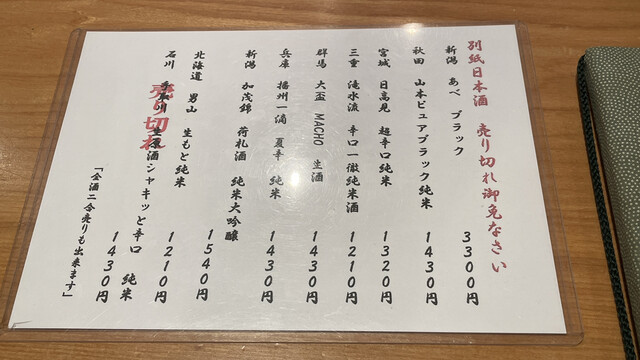 別紙日本酒 売り切れ御免なさい
新潟 あべ ブラック 3300円
秋田 山本ピュアブラック純米 1430円
宮城 日高見 超辛口純米 1320円
三重 滝水流 辛口一徹純米酒 1210円
群馬 大盃 MACHO 生酒 1430円
兵庫 播州一滴 夏辛 純米 1430円
新潟 加茂錦 荷札酒 純米大吟醸
北海道 男山 生もと純米 1540円
石川 手取川 生原酒シャキッと辛口 純米 1210円
売り切れ
1430円
「全酒二合売りも出来ます」